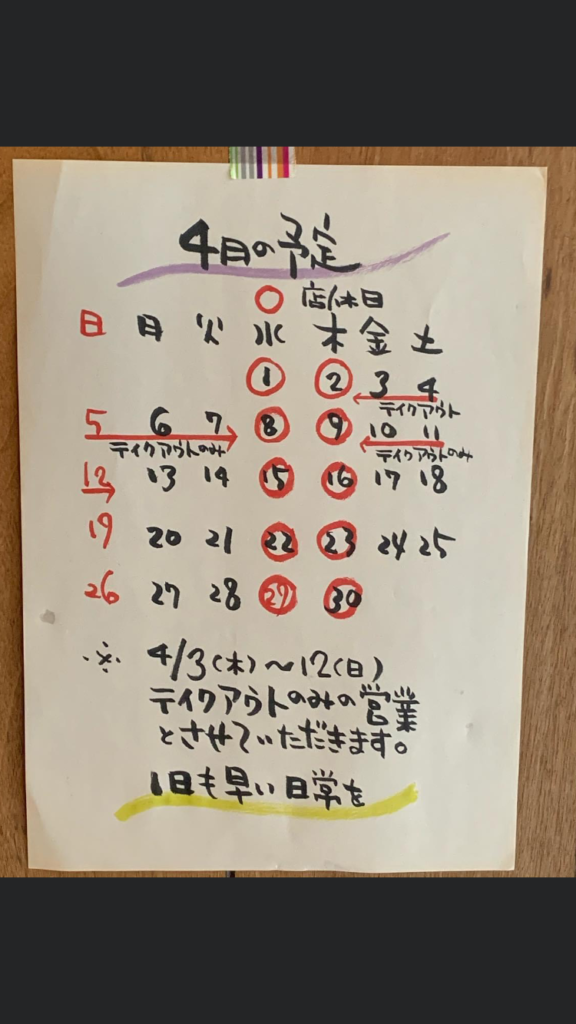 4月の予定
○ 店休日
日 月 火 水 木 金 土
1 2 3 4
テイクアウト
5 6 7 8 9 10 11
テイクアウトのみ テイクアウトのみ
12 13 14 15 16 17 18
19 20 21 22 23 24 25
26 27 28 29 30
※ 4/3(木)〜12(日)
テイクアウトのみの営業
とさせていただきます。
1日も早い日常を